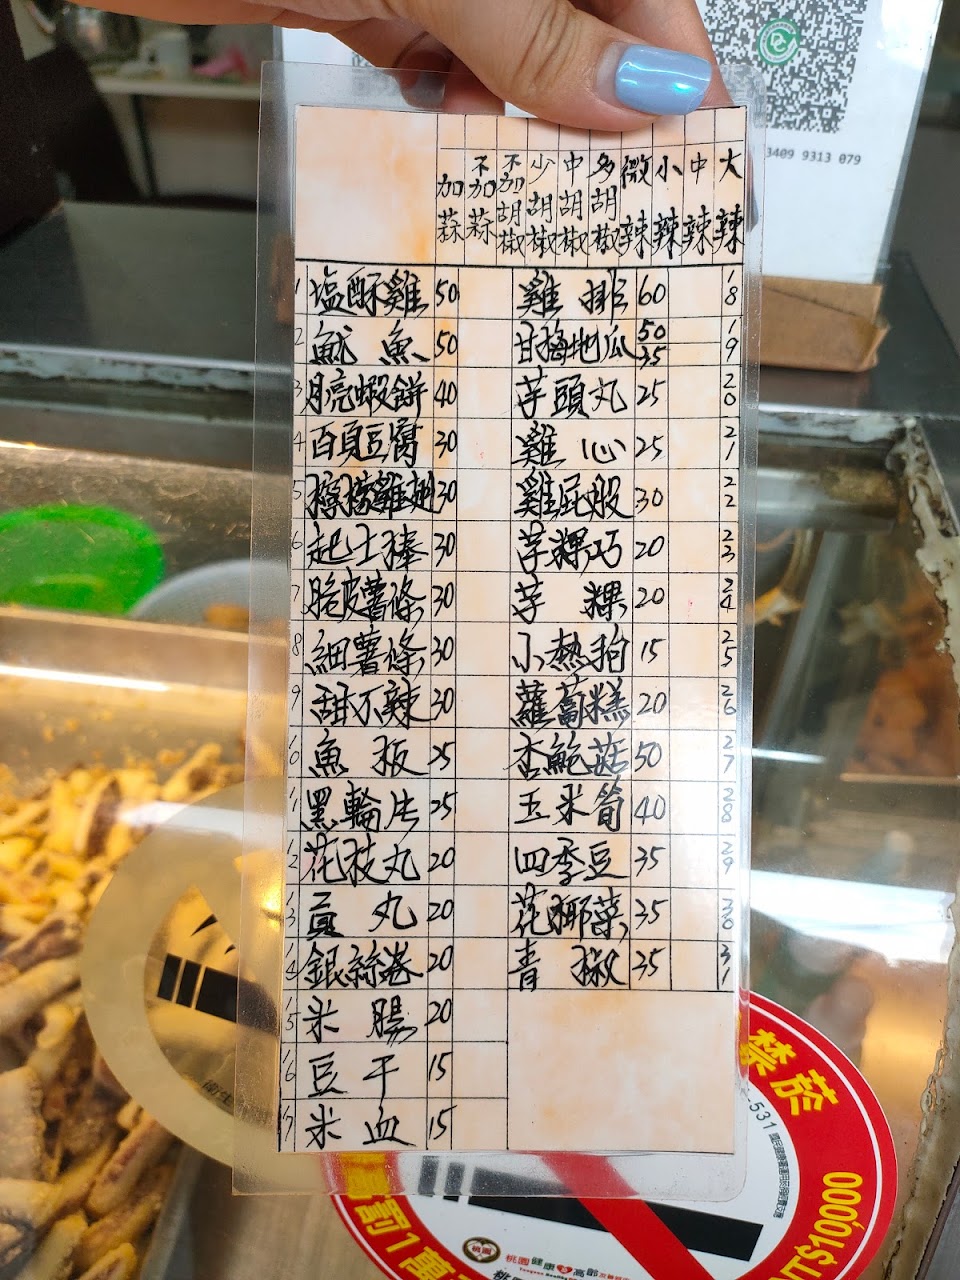 3409 9313 079
加蒜 不加蒜 不加胡椒 少胡椒 中胡椒 多胡椒 微辣 小辣 中辣 大辣
1 塩酥雞 50
2 魷魚 50
3 月亮蝦餅 40
4 百頁豆腐 30
5 檸檬雞翅 30
6 起士棒 30
7 脆皮薯條 30
8 細薯條 30
9 甜不辣 30
10 魚板 25
11 黑輪片 25
12 花枝丸 20
13 貢丸 20
14 銀絲卷 20
15 米腸 20
16 豆干 15
17 米血 15
雞排 60 18
甘梅地瓜 50 35 19
芋頭丸 25 20
雞心 25 21
雞屁股 30 22
芋粿巧 20 23
芋粿 20 24
小熱狗 15 25
蘿蔔糕 20 26
杏鮑菇 50 27
玉米筍 40 28
四季豆 35 29
花椰菜 35 30
青椒 35 31
禁菸
-531
罰1萬
$10000
桃園
桃園健康